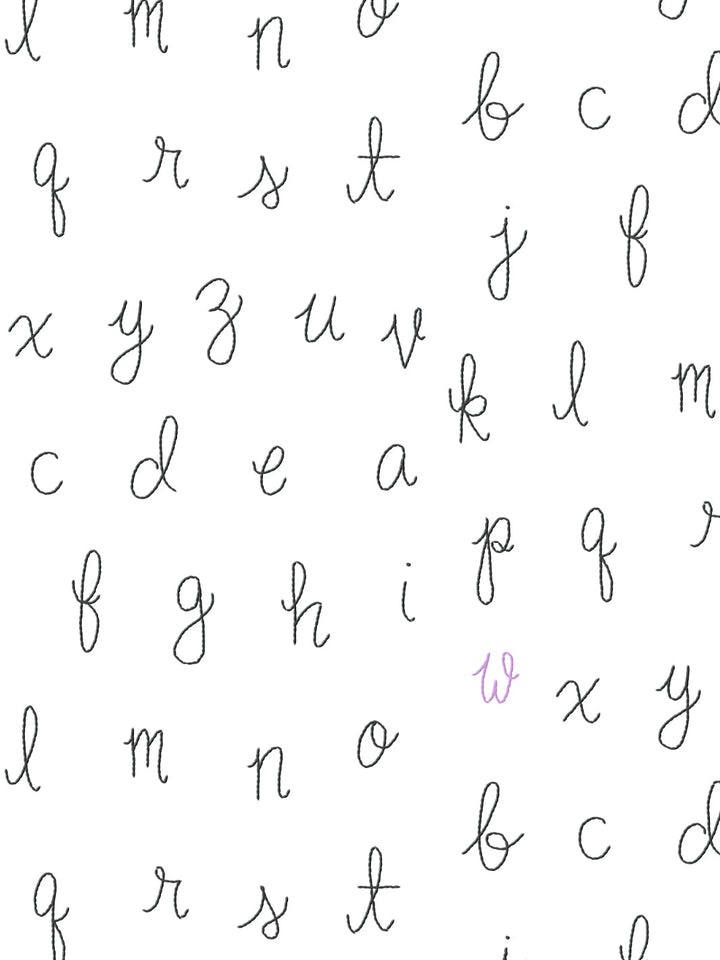 l m n o
b c d
q r s t
j f
x y z u v
k l m
c d e a
p q r
f g h i
w x y
l m n o
b c d
q r s t
j f